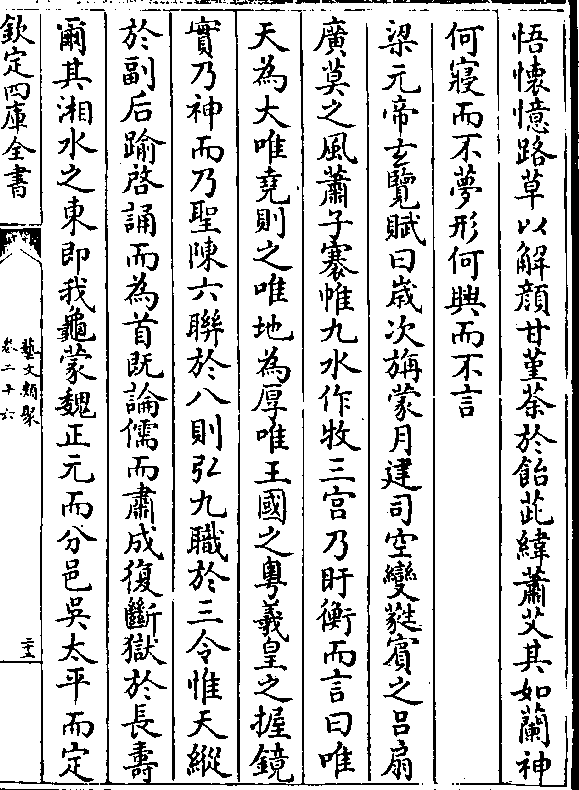 悟懐憶路草以解顔甘堇荼於飴茈緯蕭艾其如蘭神
何寢而不夢形何興而不言
梁元帝玄覽賦曰嵗次旃蒙月建司空變蕤賓之吕扇
廣莫之風蕭子褰帷九水作牧三宫乃盱衡而言曰唯
天為大唯堯則之唯地為厚唯王國之粵羲皇之握鏡
實乃神而乃聖陳六聯於八則弘九職於三令惟天縱
於副后踰啓誦而為首既論儒而肅成復斷獄於長壽
爾其湘水之東即我龜蒙魏正元而分邑吳太平而定
欽定四庫全書
藝文類聚
卷二十六